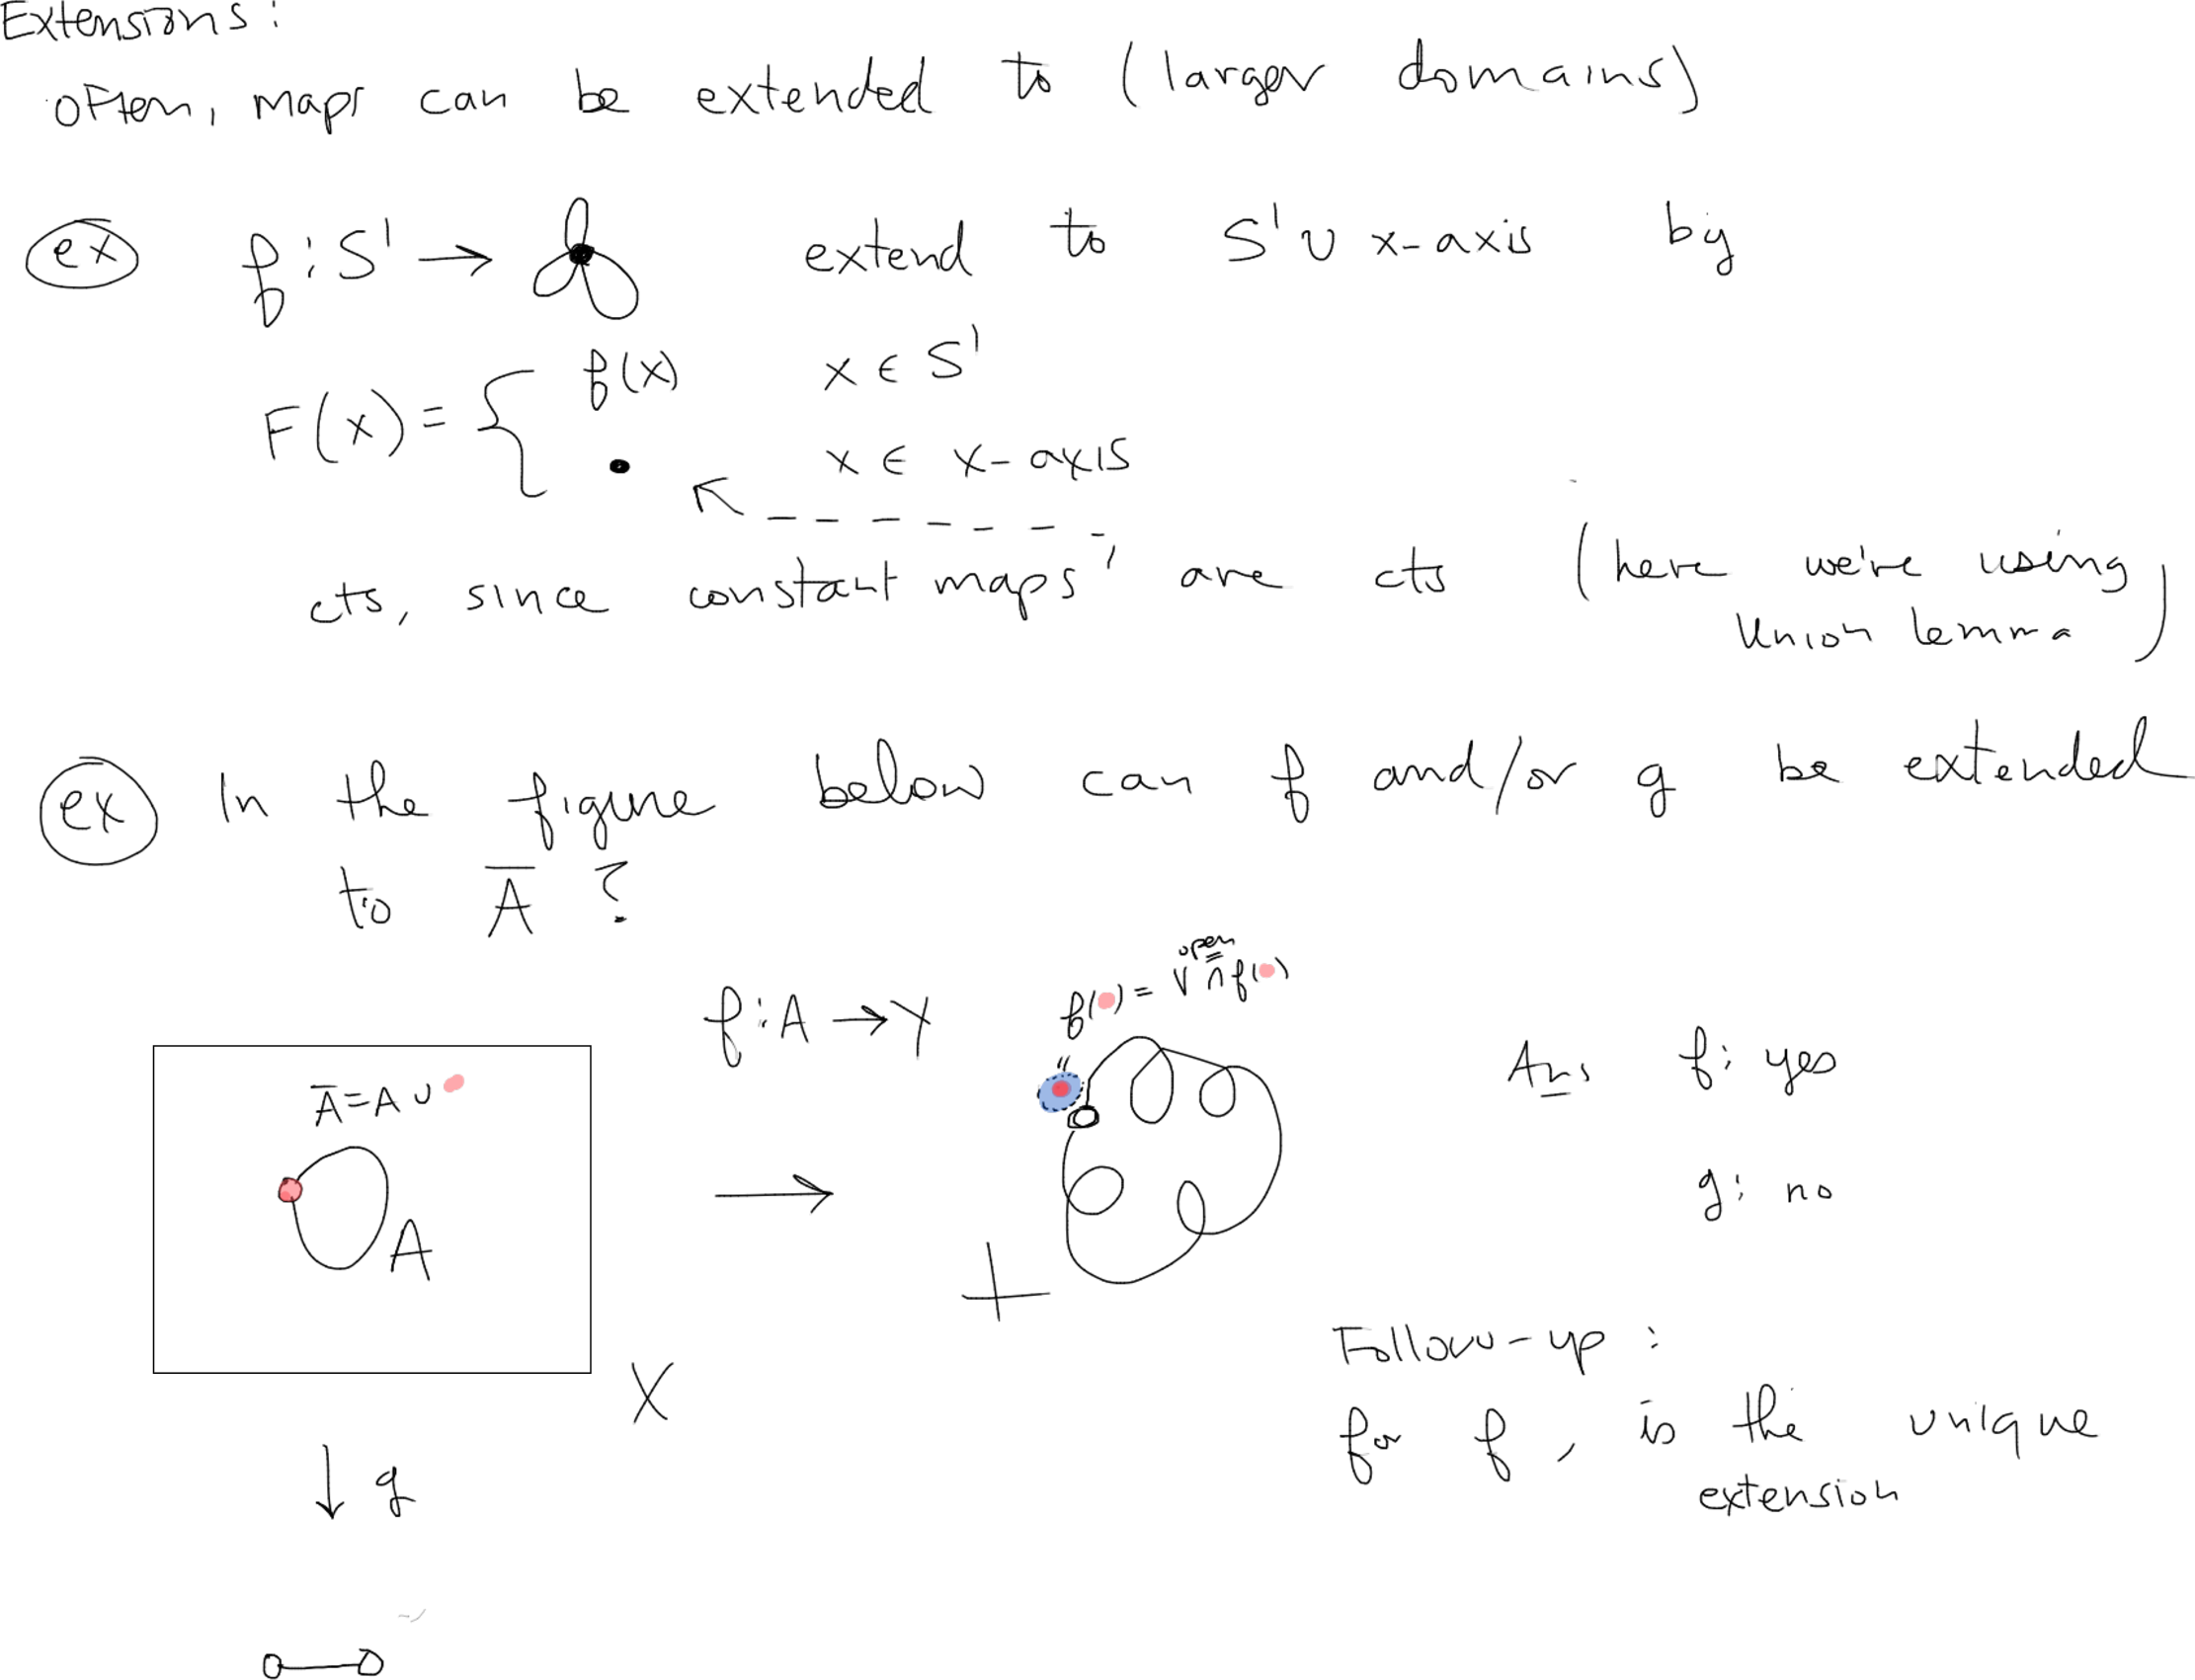 Extensions:
often, maps can be extended to (larger domains)
ex f: S¹ → extend to S¹ ∪ x-axis by
F(x) = { f(x) x ∈ S¹
• x ∈ x-axis
cts, since constant maps are cts (here we're using
Union lemma)
ex In the figure below can f and/or g be extended
to A̅ ?
open
f( ) = V ∩ f( )
f: A → Y
"
Ans f: yes
A̅ = A ∪
g: no
A
Follow-up:
X
for f, is the unique
extension
↓ g